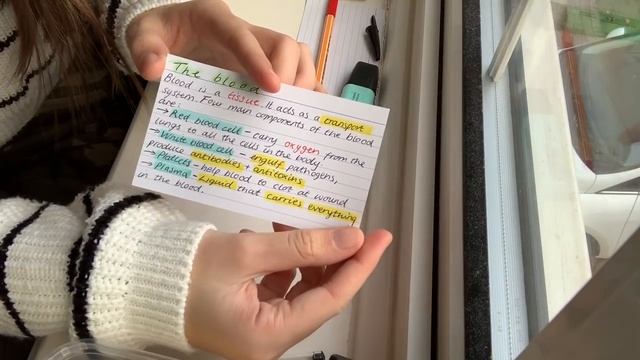 The blood
Blood is a tissue. It acts as a transport
system. Four main components of the blood
are:
→ Red blood cell - carry oxygen from the
lungs to all the cells in the body
→ White blood cell - engulf pathogens,
produce antibodies + antitoxins
→ Platlets - help blood to clot at wound
→ Plasma - Liquid that carries everything
in the blood.